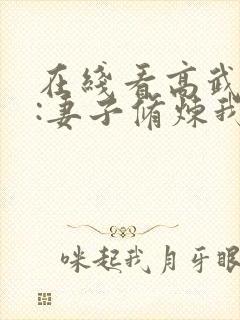 在綫看高武
:妻子脩煉我
咪起我月牙眼